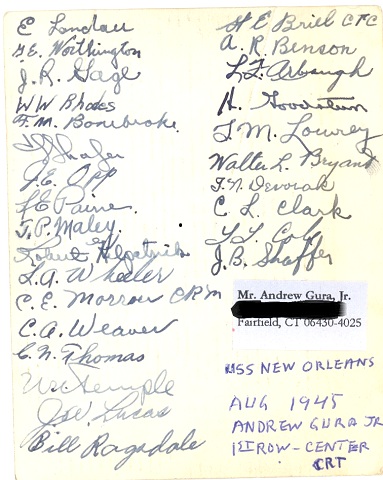 E Landau
G.E. Worthington
J.R. Gage
W W Rhodes
F.M. Bonebrake.
Shafer
J.E. Opp
Paine
T.P. Maley.
Robert Kilpatrick
L.A. Wheeler
C.E. Morrow CRM
C.A. Weaver
C.N. Thomas
Wm Temple
J.W. Lucas
Bill Ragsdale
H E Brill CFC
A.R. Benson
L.F. Arbaugh
H. Goodstein
T.M. Lowrey
Walter L. Bryant
F.N. Dvorak
C L. Clark
J.B. Shaffer
Mr. Andrew Gura, Jr.
Fairfield, CT 06430-4025
USS NEW ORLEANS
AUG 1945
ANDREW GURA JR
1ST ROW-CENTER
CRT